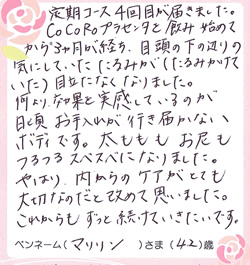 定期コース4回目が届きました。
CoCoRoプラセンタを飲み始めて
から3ヵ月が経ち、目頭の下の辺りの
気にしていたたるみが(たるみかけて
いた)目立たなくなりました。
何より効果を実感しているのが
日頃お手入れが行き届かない
ボディです。太ももも お尻も
つるつるスベスベになりました。
やはり、内からのケアがとても
大切なのだと改めて思いました。
これからもずっと続けていきたいです。
ペンネーム(マリリン)さま(42)歳